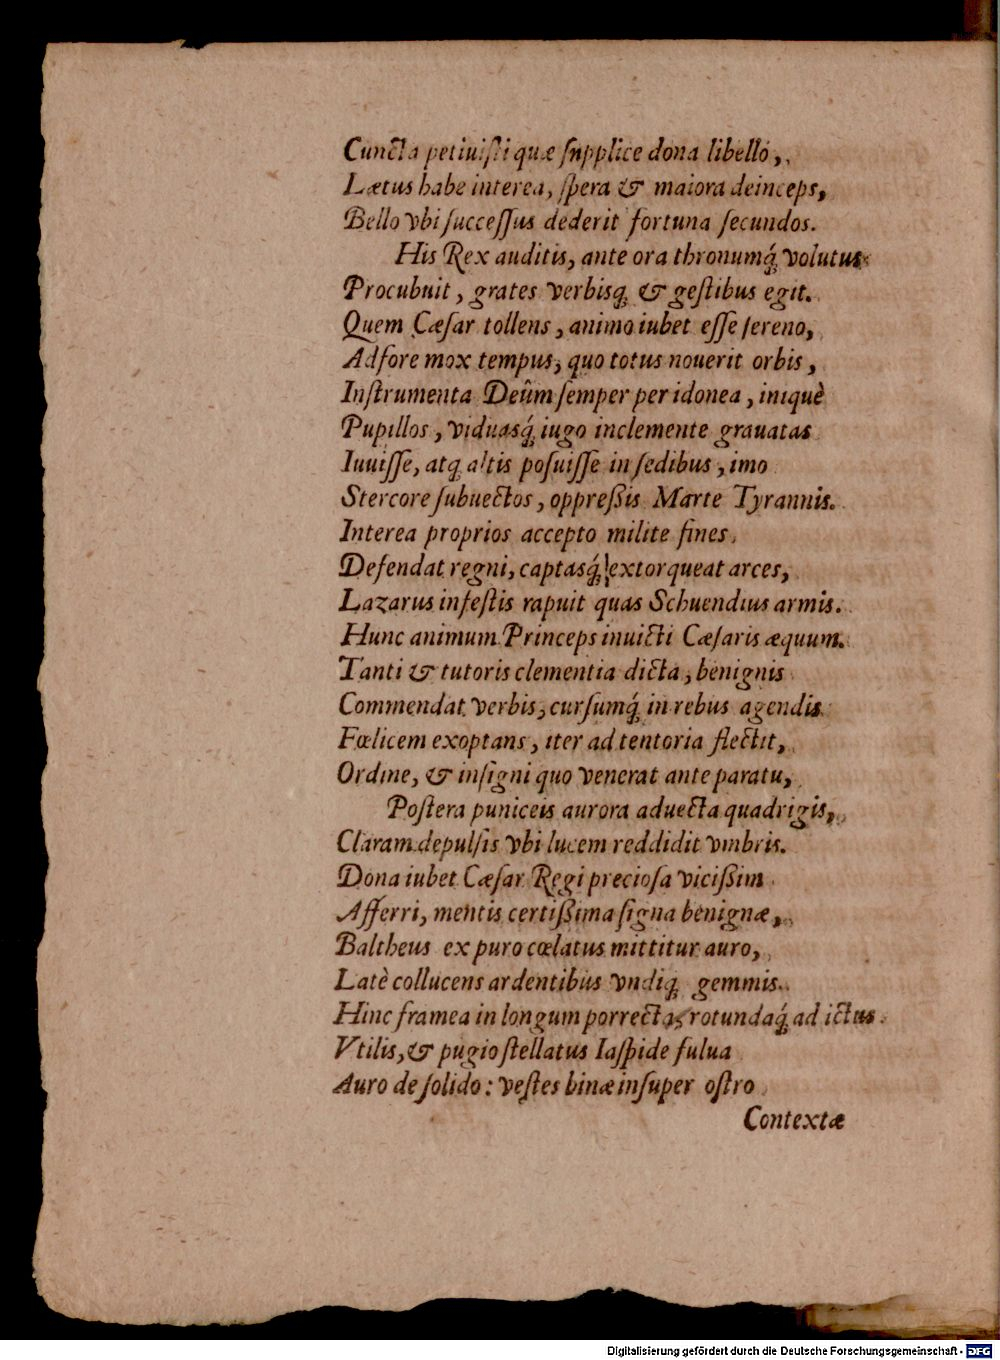 Cuncta petiuiſti quæ ſupplice dona libello,
Lætus habe interea, ſpera & maiora deinceps,
Bello vbi ſucceſſus dederit fortuna ſecundos.
His Rex auditis, ante ora thronumq́; volutus
Procubuit, grates verbisq; & geſtibus egit.
Quem Cæſar tollens, animo iubet eſſe ſereno,
Adfore mox tempus, quo totus nouerit orbis,
Inſtrumenta Deûm ſemper per idonea, iniquè
Pupillos, viduasq́; iugo inclemente grauatas
Iuuiſſe, atq; altis poſuiſſe in ſedibus, imo
Stercore ſubuectos, oppreßis Marte Tyrannis.
Interea proprios accepto milite fines,
Defendat regni, captasq́; extorqueat arces,
Lazarus infeſtis rapuit quas Schuendius armis.
Hunc animum Princeps inuicti Cæſaris æquum.
Tanti & tutoris clementia dicta, benignis
Commendat verbis, curſumq́; in rebus agendis
Fœlicem exoptans, iter ad tentoria flectit,
Ordine, & inſigni quo venerat ante paratu,
Poſtera puniceis aurora aduecta quadrigis,
Claram depulſis vbi lucem reddidit vmbris.
Dona iubet Cæſar Regi precioſa vicißim
Afferri, mentis certißima ſigna benignæ,
Baltheus ex puro cœlatus mittitur auro,
Latè collucens ardentibus vndiq; gemmis.
Hinc framea in longum porrecta, rotundaq́; ad ictus
Vtilis, & pugio ſtellatus Iaſpide fulua
Auro de ſolido: veſtes binæ inſuper oſtro
Contextæ
Digitalisierung gefördert durch die Deutsche Forschungsgemeinschaft - DFG